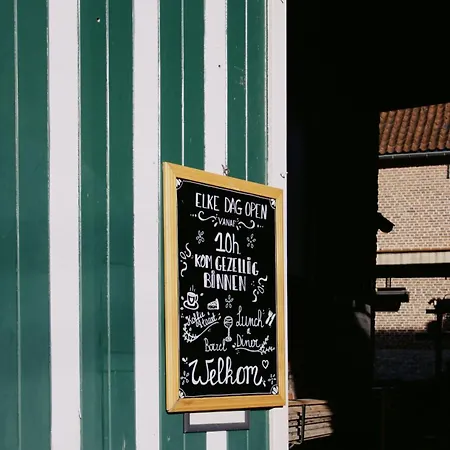 ELKE DAG OPEN
VANAF
10h
KOM GEZELLIG
BINNEN
Koffie
Lunch
&
Borrel
Diner
Welkom